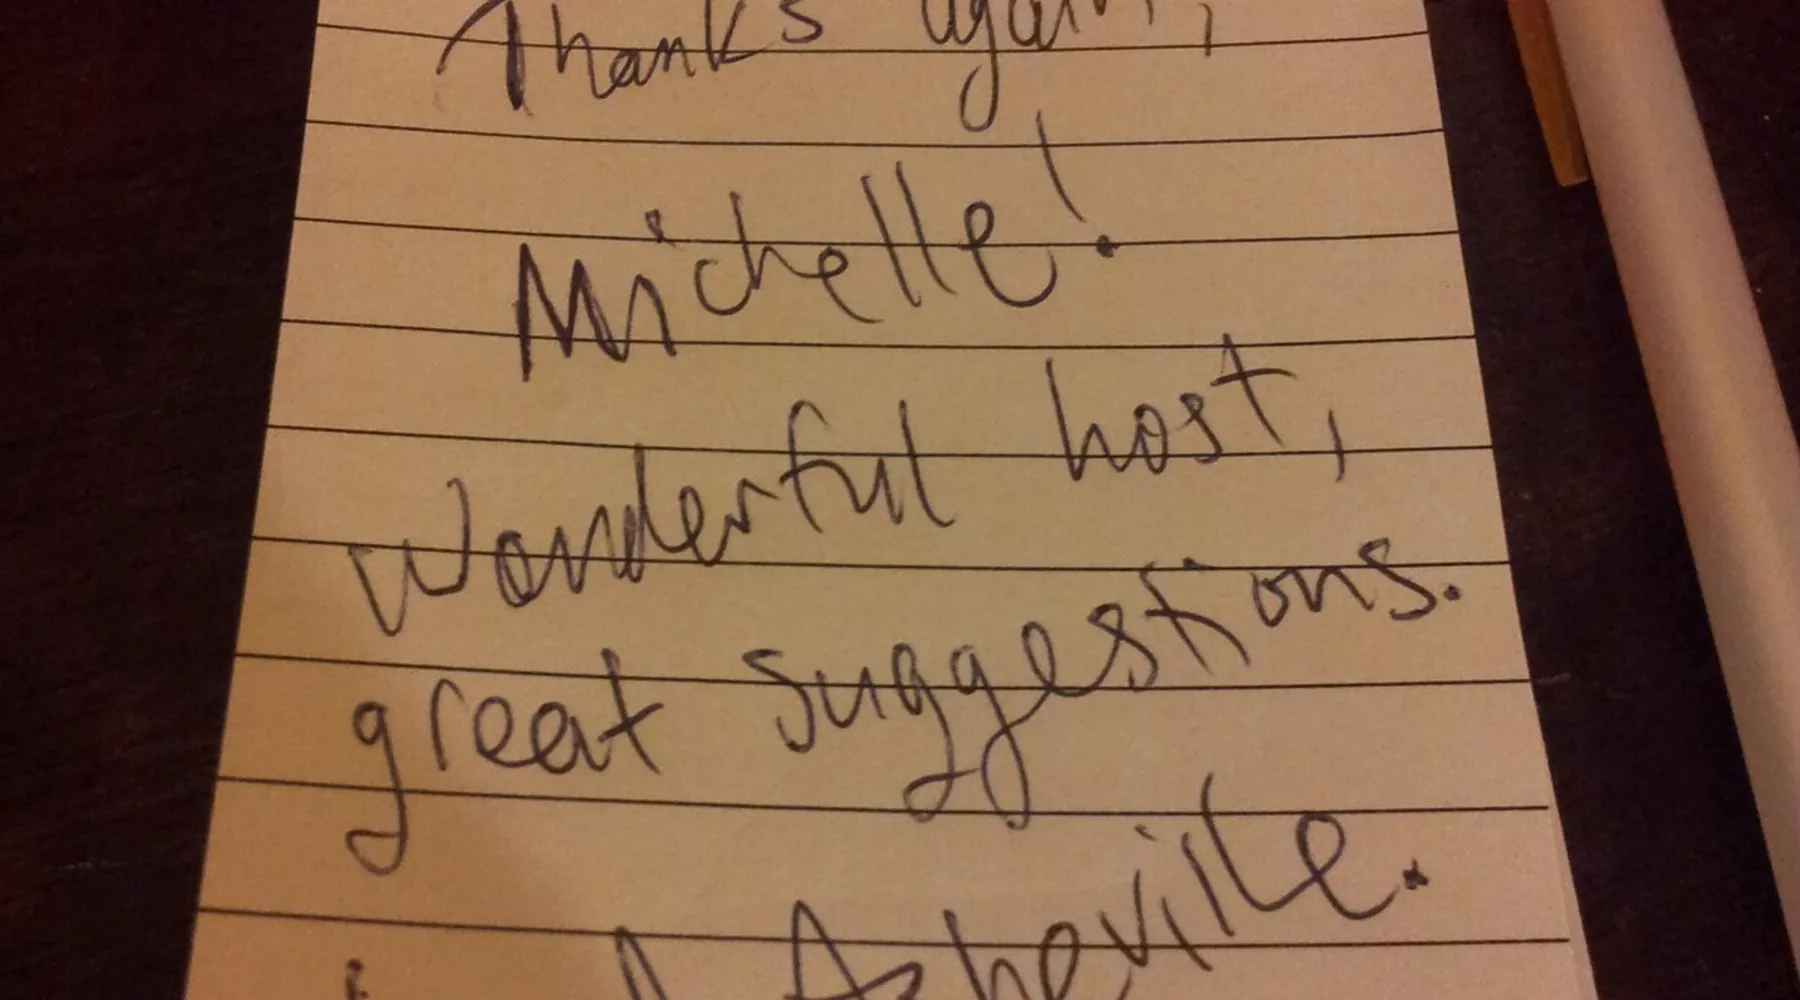 Thanks again,
Michelle!
Wonderful host,
great suggestions.
Asheville.